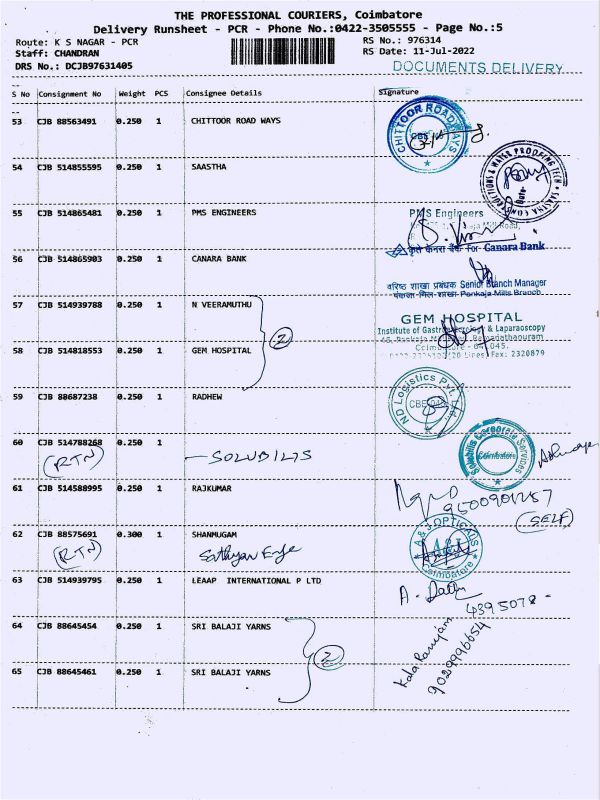 THE PROFESSIONAL COURIERS, Coimbatore
Delivery Runsheet - PCR - Phone No.:0422-3505555 - Page No.:5
Route: K S NAGAR - PCR
RS No.: 976314
Staff: CHANDRAN
RS Date: 11-Jul-2022
DRS No.: DCJB97631405
DOCUMENTS DELIVERY
S No Consignment No Weight PCS Consignee Details Signature
53 CJB 88563491 0.250 1 CHITTOOR ROAD WAYS
CHITTOOR ROADWAYS
54 CJB 514855595 0.250 1 SAASTHA
CONSTRUCTIONS & WATER PROOFING TECH
55 CJB 514865481 0.250 1 PMS ENGINEERS
PMS Engineers
56 CJB 514865903 0.250 1 CANARA BANK
कृते केनरा बैंक For Canara Bank
वरिष्ठ शाखा प्रबंधक Senior Branch Manager
पंकजा मिल शाखा Pankaja Mills Branch
57 CJB 514939788 0.250 1 N VEERAMUTHU
2
GEM HOSPITAL
Institute of Gastroenterology & Laparaoscopy
58 CJB 514818553 0.250 1 GEM HOSPITAL
Ramadathapuram
Coimbatore - 641 045.
Lines) Fax: 2320879
59 CJB 88687238 0.250 1 RADHEW
ND Logistics Pvt. Ltd.
60 CJB 514788268 0.250 1
(RTN) - SOLUBILIS
Solubilis Corporate Services
Coimbatore
61 CJB 514588995 0.250 1 RAJKUMAR
(SELF)
62 CJB 88575691 0.300 1 SHANMUGAM
(RTN) Sathyan Enge
A & J OPTICALS
A&J
Coimbatore
63 CJB 514939795 0.250 1 LEAAP INTERNATIONAL P LTD
4395078 -
64 CJB 88645454 0.250 1 SRI BALAJI YARNS
2
65 CJB 88645461 0.250 1 SRI BALAJI YARNS
9029996654